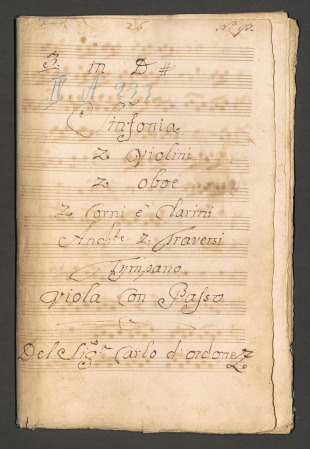 26 N° 93.
3. in D #
IV A 233
Sinfonia
2 Violini
2 oboe
2 Corni è Clarini
And:te 2 Traversi
Tympano
Viola Con Basso
Del Sig:r Carlo d'ordonez